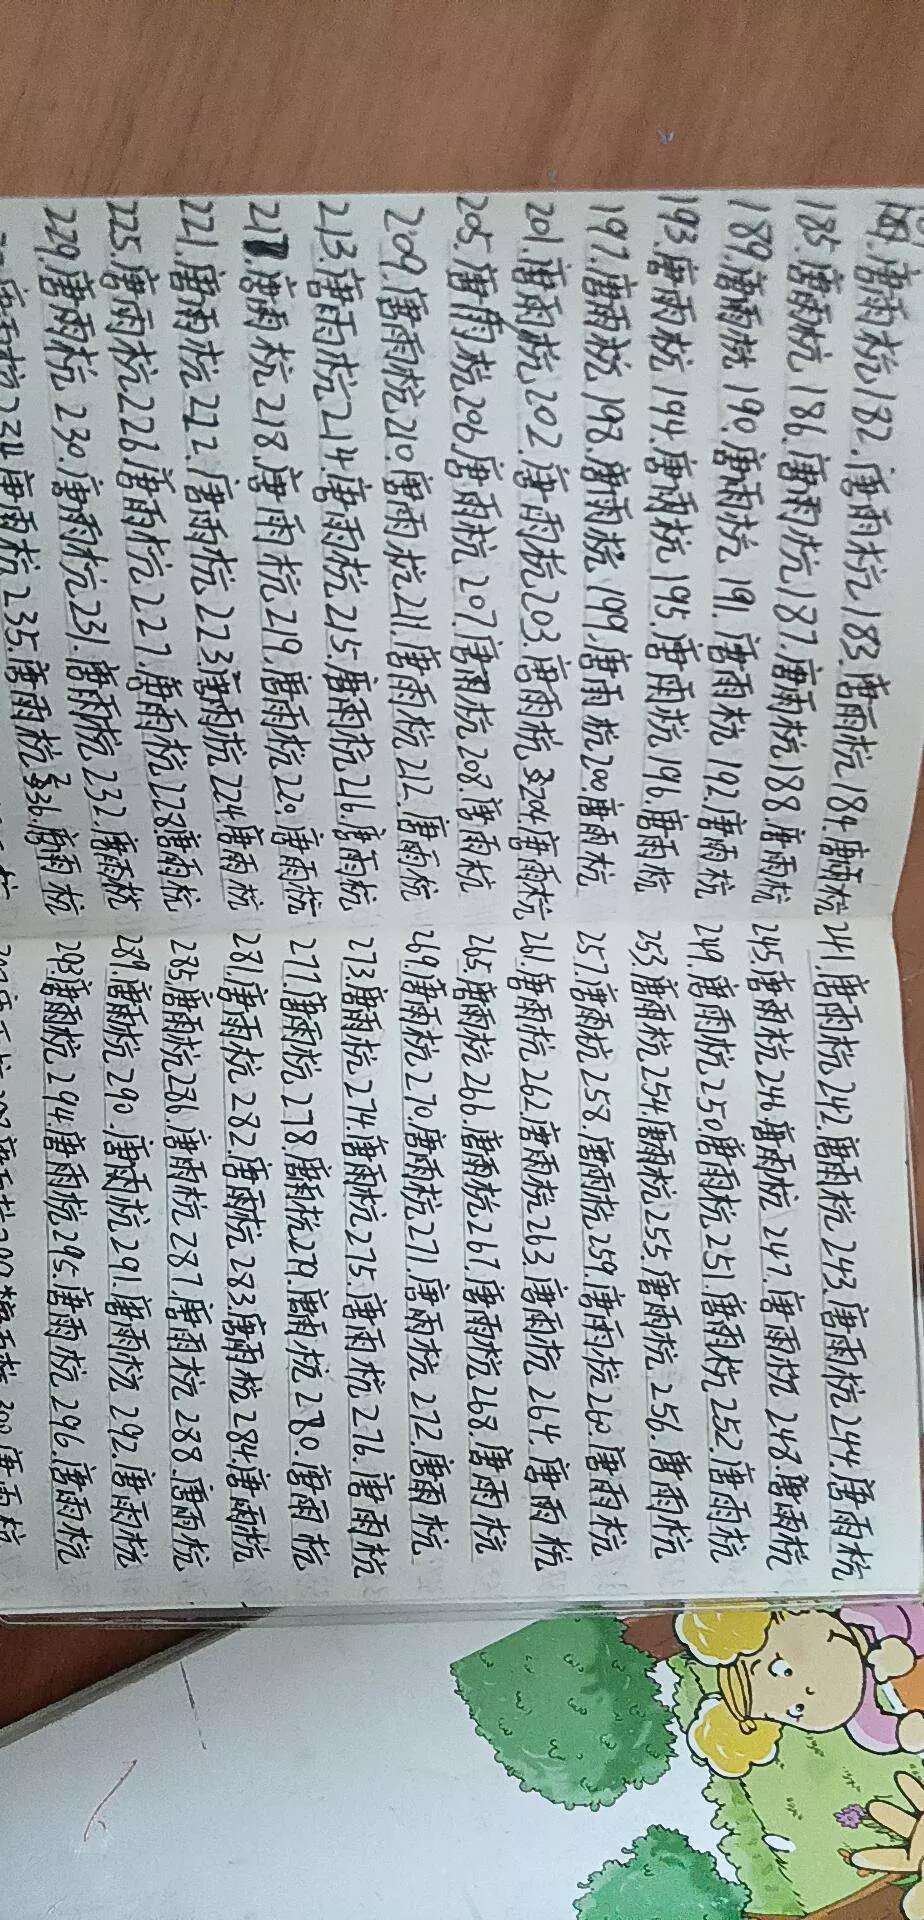 181.唐雨杭182.唐雨杭183.唐雨杭184.唐雨杭
185.唐雨杭 186.唐雨杭187.唐雨杭188.唐雨杭
189.唐雨杭 190.唐雨杭 191.唐雨杭 192.唐雨杭
193.唐雨杭 194.唐雨杭 195.唐雨杭 196.唐雨杭
197.唐雨杭 198.唐雨杭 199.唐雨杭200.唐雨杭
201.唐雨杭 202.唐雨杭203.唐雨杭 204.唐雨杭
205.唐雨杭206.唐雨杭 207.唐雨杭208.唐雨杭
209.唐雨杭210.唐雨杭211.唐雨杭212.唐雨杭
213.唐雨杭214.唐雨杭215.唐雨杭216.唐雨杭
217.唐雨杭218.唐雨杭219.唐雨杭220.唐雨杭
221.唐雨杭222.唐雨杭223.唐雨杭224.唐雨杭
225.唐雨杭226唐雨杭227.唐雨杭228.唐雨杭
229.唐雨杭 230.唐雨杭231.唐雨杭232.唐雨杭
唐雨杭234.唐雨杭 235.唐雨杭236.唐雨杭
241.唐雨杭242.唐雨杭 243.唐雨杭244.唐雨杭
245.唐雨杭246.唐雨杭 247.唐雨杭 248.唐雨杭
249.唐雨杭250唐雨杭251.唐雨杭252.唐雨杭
253.唐雨杭254.唐雨杭255.唐雨杭 256.唐雨杭
257.唐雨杭 258.唐雨杭259.唐雨杭260.唐雨杭
261.唐雨杭262.唐雨杭263.唐雨杭 264.唐雨杭
265.唐雨杭266.唐雨杭267.唐雨杭268.唐雨杭
269.唐雨杭270.唐雨杭271.唐雨杭 272.唐雨杭
273.唐雨杭274.唐雨杭275.唐雨杭276.唐雨杭
277.唐雨杭 278.唐雨杭279.唐雨杭280.唐雨杭
281.唐雨杭282.唐雨杭283.唐雨杭284.唐雨杭
285.唐雨杭286.唐雨杭287.唐雨杭288.唐雨杭
289.唐雨杭290.唐雨杭291.唐雨杭292.唐雨杭
293唐雨杭294.唐雨杭295.唐雨杭296.唐雨杭
300.唐雨杭